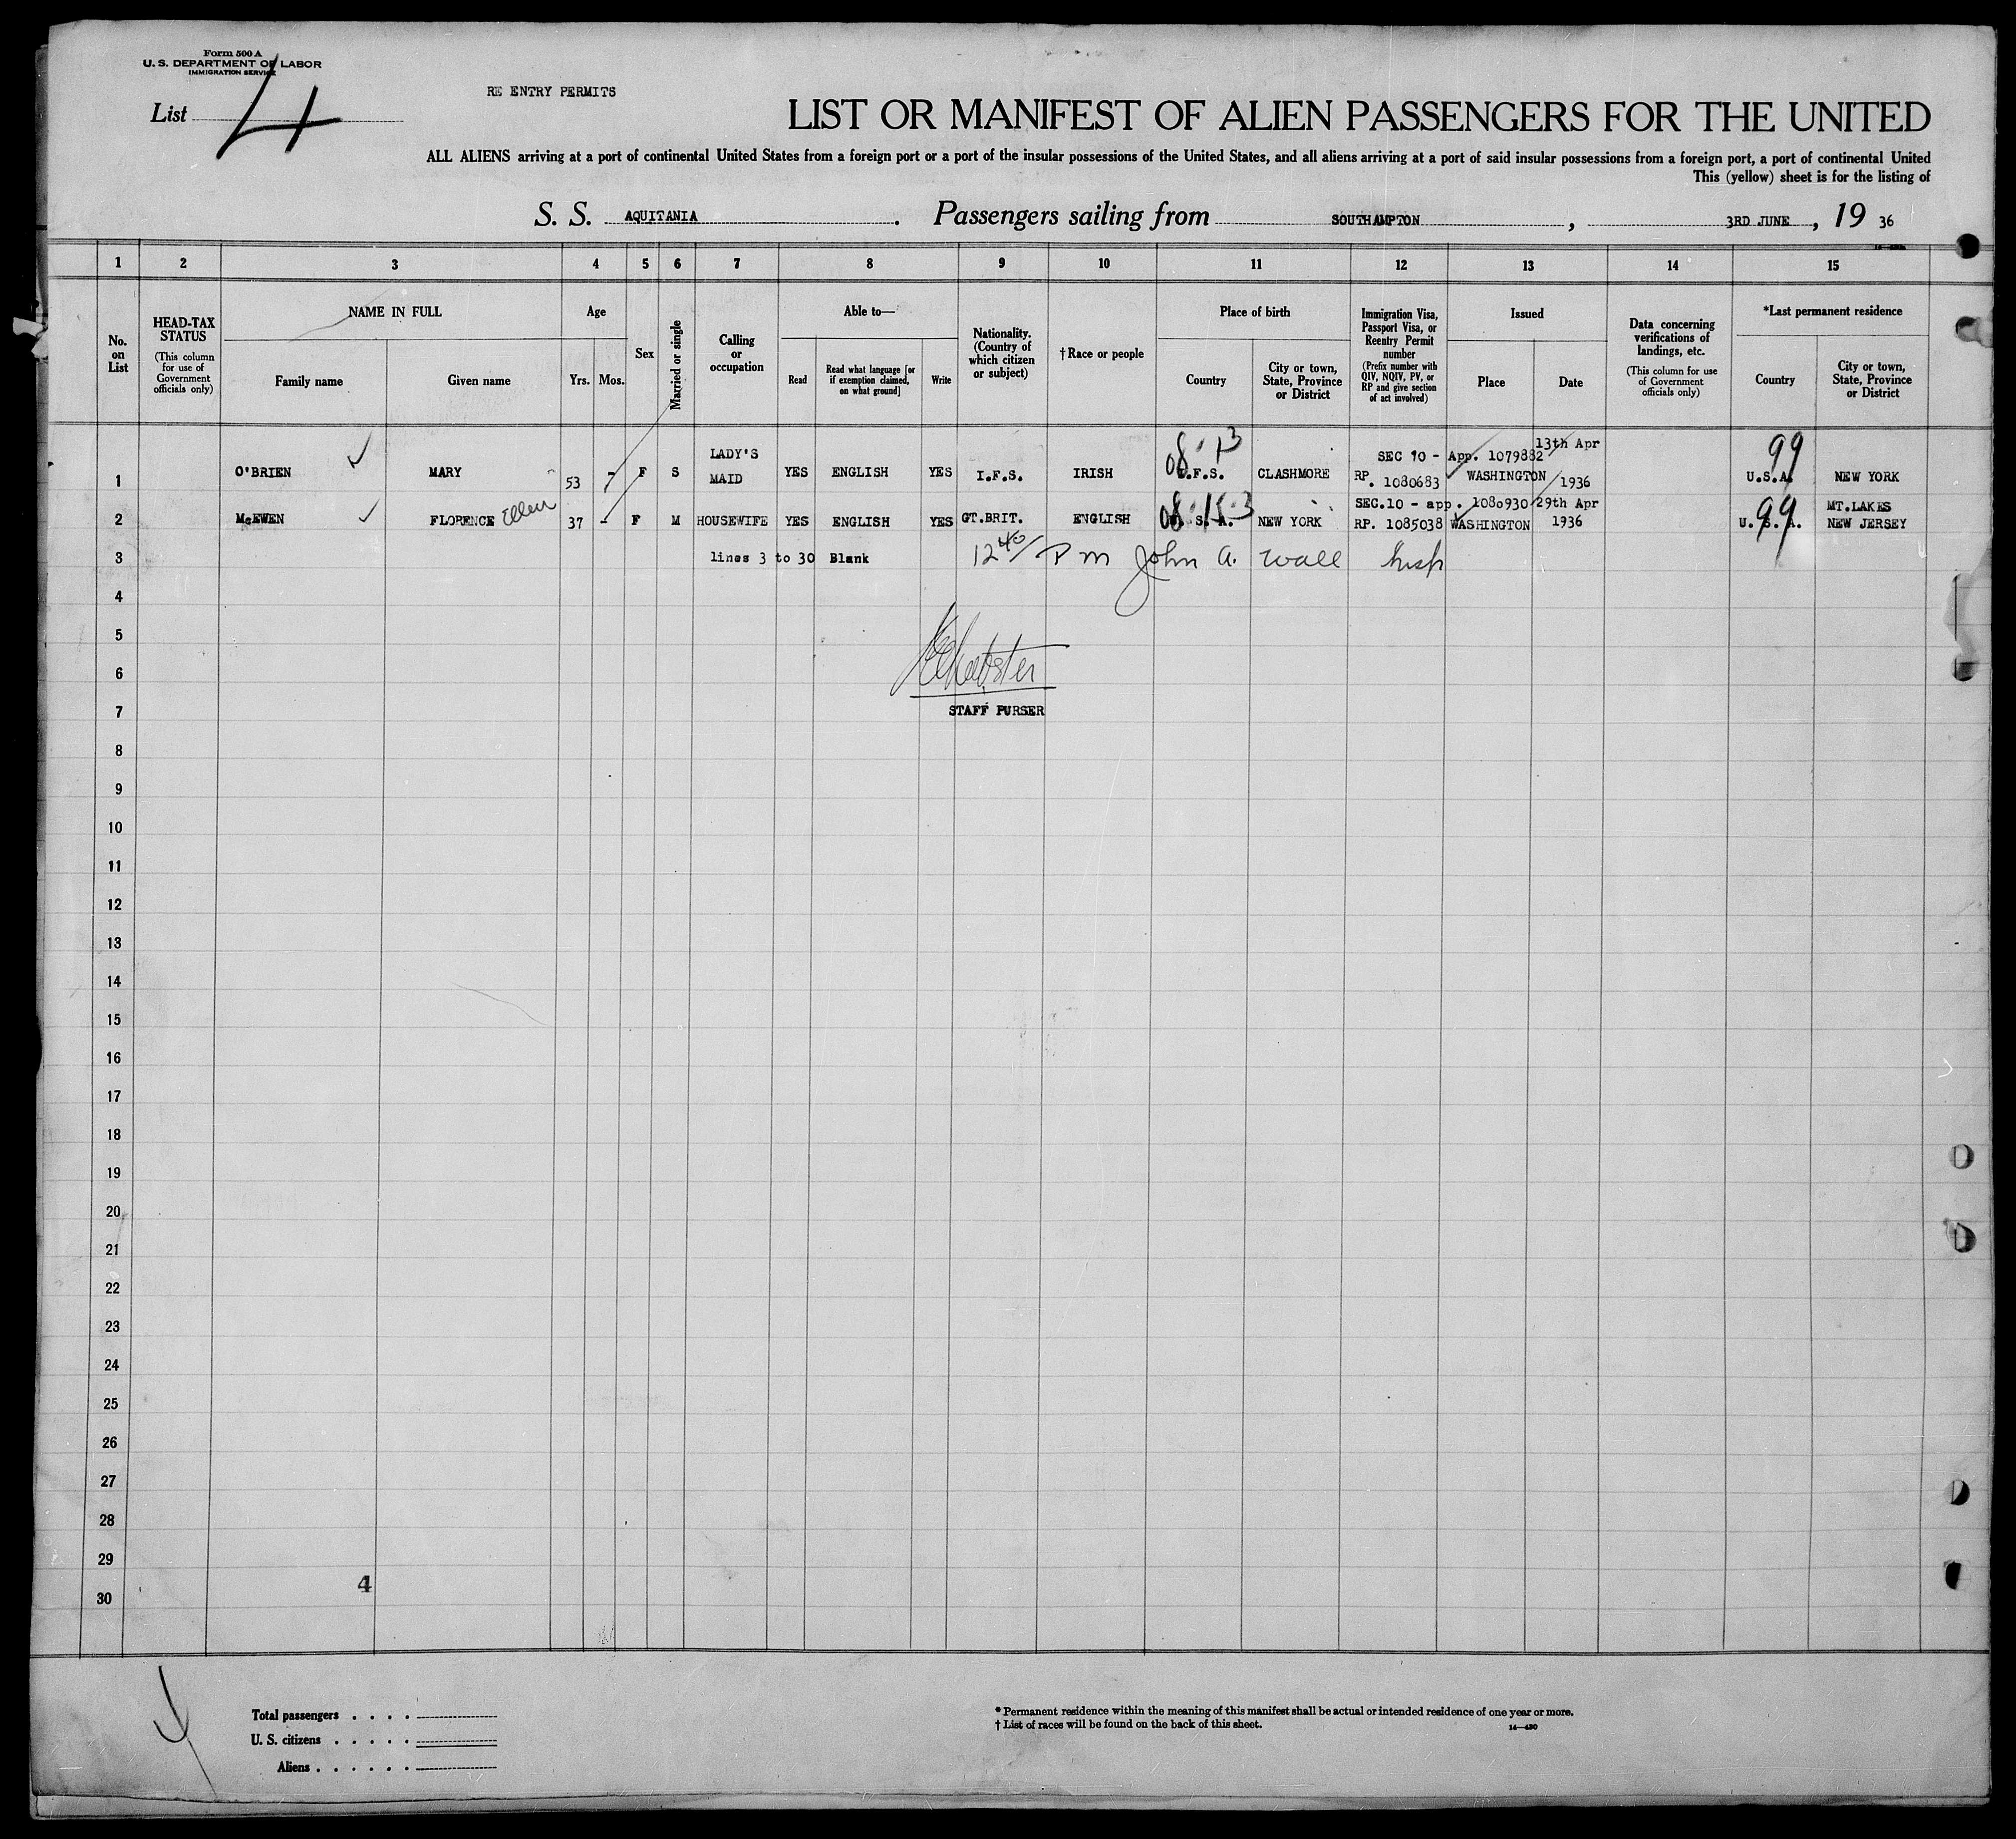 Form 500 A
U. S. DEPARTMENT OF LABOR
IMMIGRATION SERVICE
List 4
RE ENTRY PERMITS
LIST OR MANIFEST OF ALIEN PASSENGERS FOR THE UNITED
ALL ALIENS arriving at a port of continental United States from a foreign port or a port of the insular possessions of the United States, and all aliens arriving at a port of said insular possessions from a foreign port, a port of continental United
This (yellow) sheet is for the listing of
S. S. AQUITANIA. Passengers sailing from SOUTHAMPTON, 3RD JUNE, 19 36
1 2 3 4 5 6 7 8 9 10 11 12 13 14 15
No. on List
HEAD-TAX STATUS
(This column for use of Government officials only)
NAME IN FULL
Family name
Given name
Age
Yrs. Mos.
Sex
Married or single
Calling or occupation
Able to—
Read
Read what language [or if exemption claimed, on what ground]
Write
Nationality. (Country of which citizen or subject)
† Race or people
Place of birth
Country
City or town, State, Province or District
Immigration Visa, Passport Visa, or Reentry Permit number
(Prefix number with QIV, NQIV, PV, or RP and give section of act involved)
Issued
Place
Date
Data concerning verifications of landings, etc.
(This column for use of Government officials only)
*Last permanent residence
Country
City or town, State, Province or District
1 O'BRIEN MARY 53 7 F S LADY'S MAID YES ENGLISH YES I.F.S. IRISH I.F.S. CLASHMORE SEC 10 - App. 1079882 RP. 1080683 WASHINGTON 13th Apr 1936 99 U.S.A. NEW YORK
2 McEWEN FLORENCE Ellen 37 - F M HOUSEWIFE YES ENGLISH YES GT.BRIT. ENGLISH U.S.A. NEW YORK SEC.10 - app. 1080930 RP. 1085038 WASHINGTON 29th Apr 1936 99 U.S.A. MT.LAKES NEW JERSEY
3 lines 3 to 30 Blank 12 40/ P m John A. Wall Insp
4
5
6
7 STAFF PURSER
8
9
10
11
12
13
14
15
16
17
18
19
20
21
22
23
24
25
26
27
28
29
4
30
Total passengers
U. S. citizens
Aliens
* Permanent residence within the meaning of this manifest shall be actual or intended residence of one year or more.
† List of races will be found on the back of this sheet.
14—430